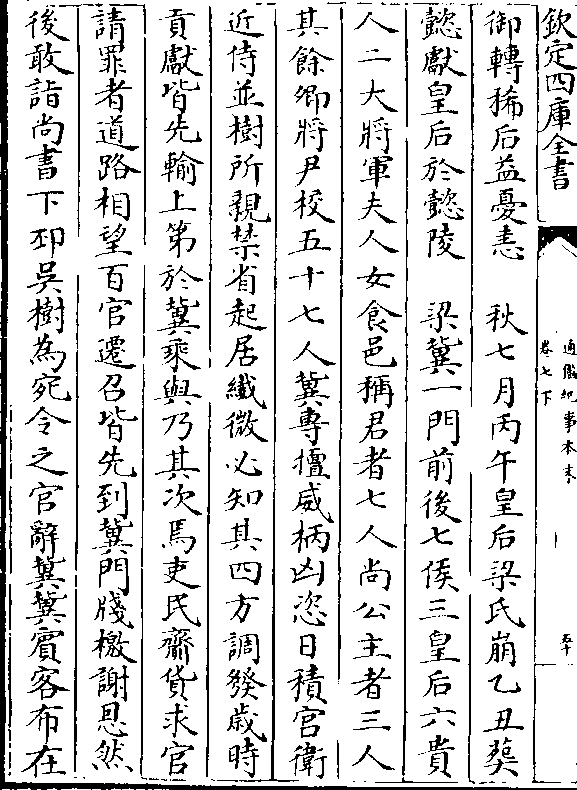 欽定四庫全書
通鑑紀事本末
卷七下
五十
御轉稀后益憂恚　秋七月丙午皇后梁氏崩乙丑葬
懿獻皇后於懿陵　梁冀一門前後七侯三皇后六貴
人二大將軍夫人女食邑稱君者七人尚公主者三人
其餘卿將尹校五十七人冀專擅威柄凶恣日積宮衛
近侍並樹所親禁省起居纖微必知其四方調發歲時
貢獻皆先輸上第於冀乘輿乃其次焉吏民齎貨求官
請罪者道路相望百官遷召皆先到冀門牋檄謝恩然
後敢詣尚書下邳吳樹為宛令之官辭冀冀賓客布在